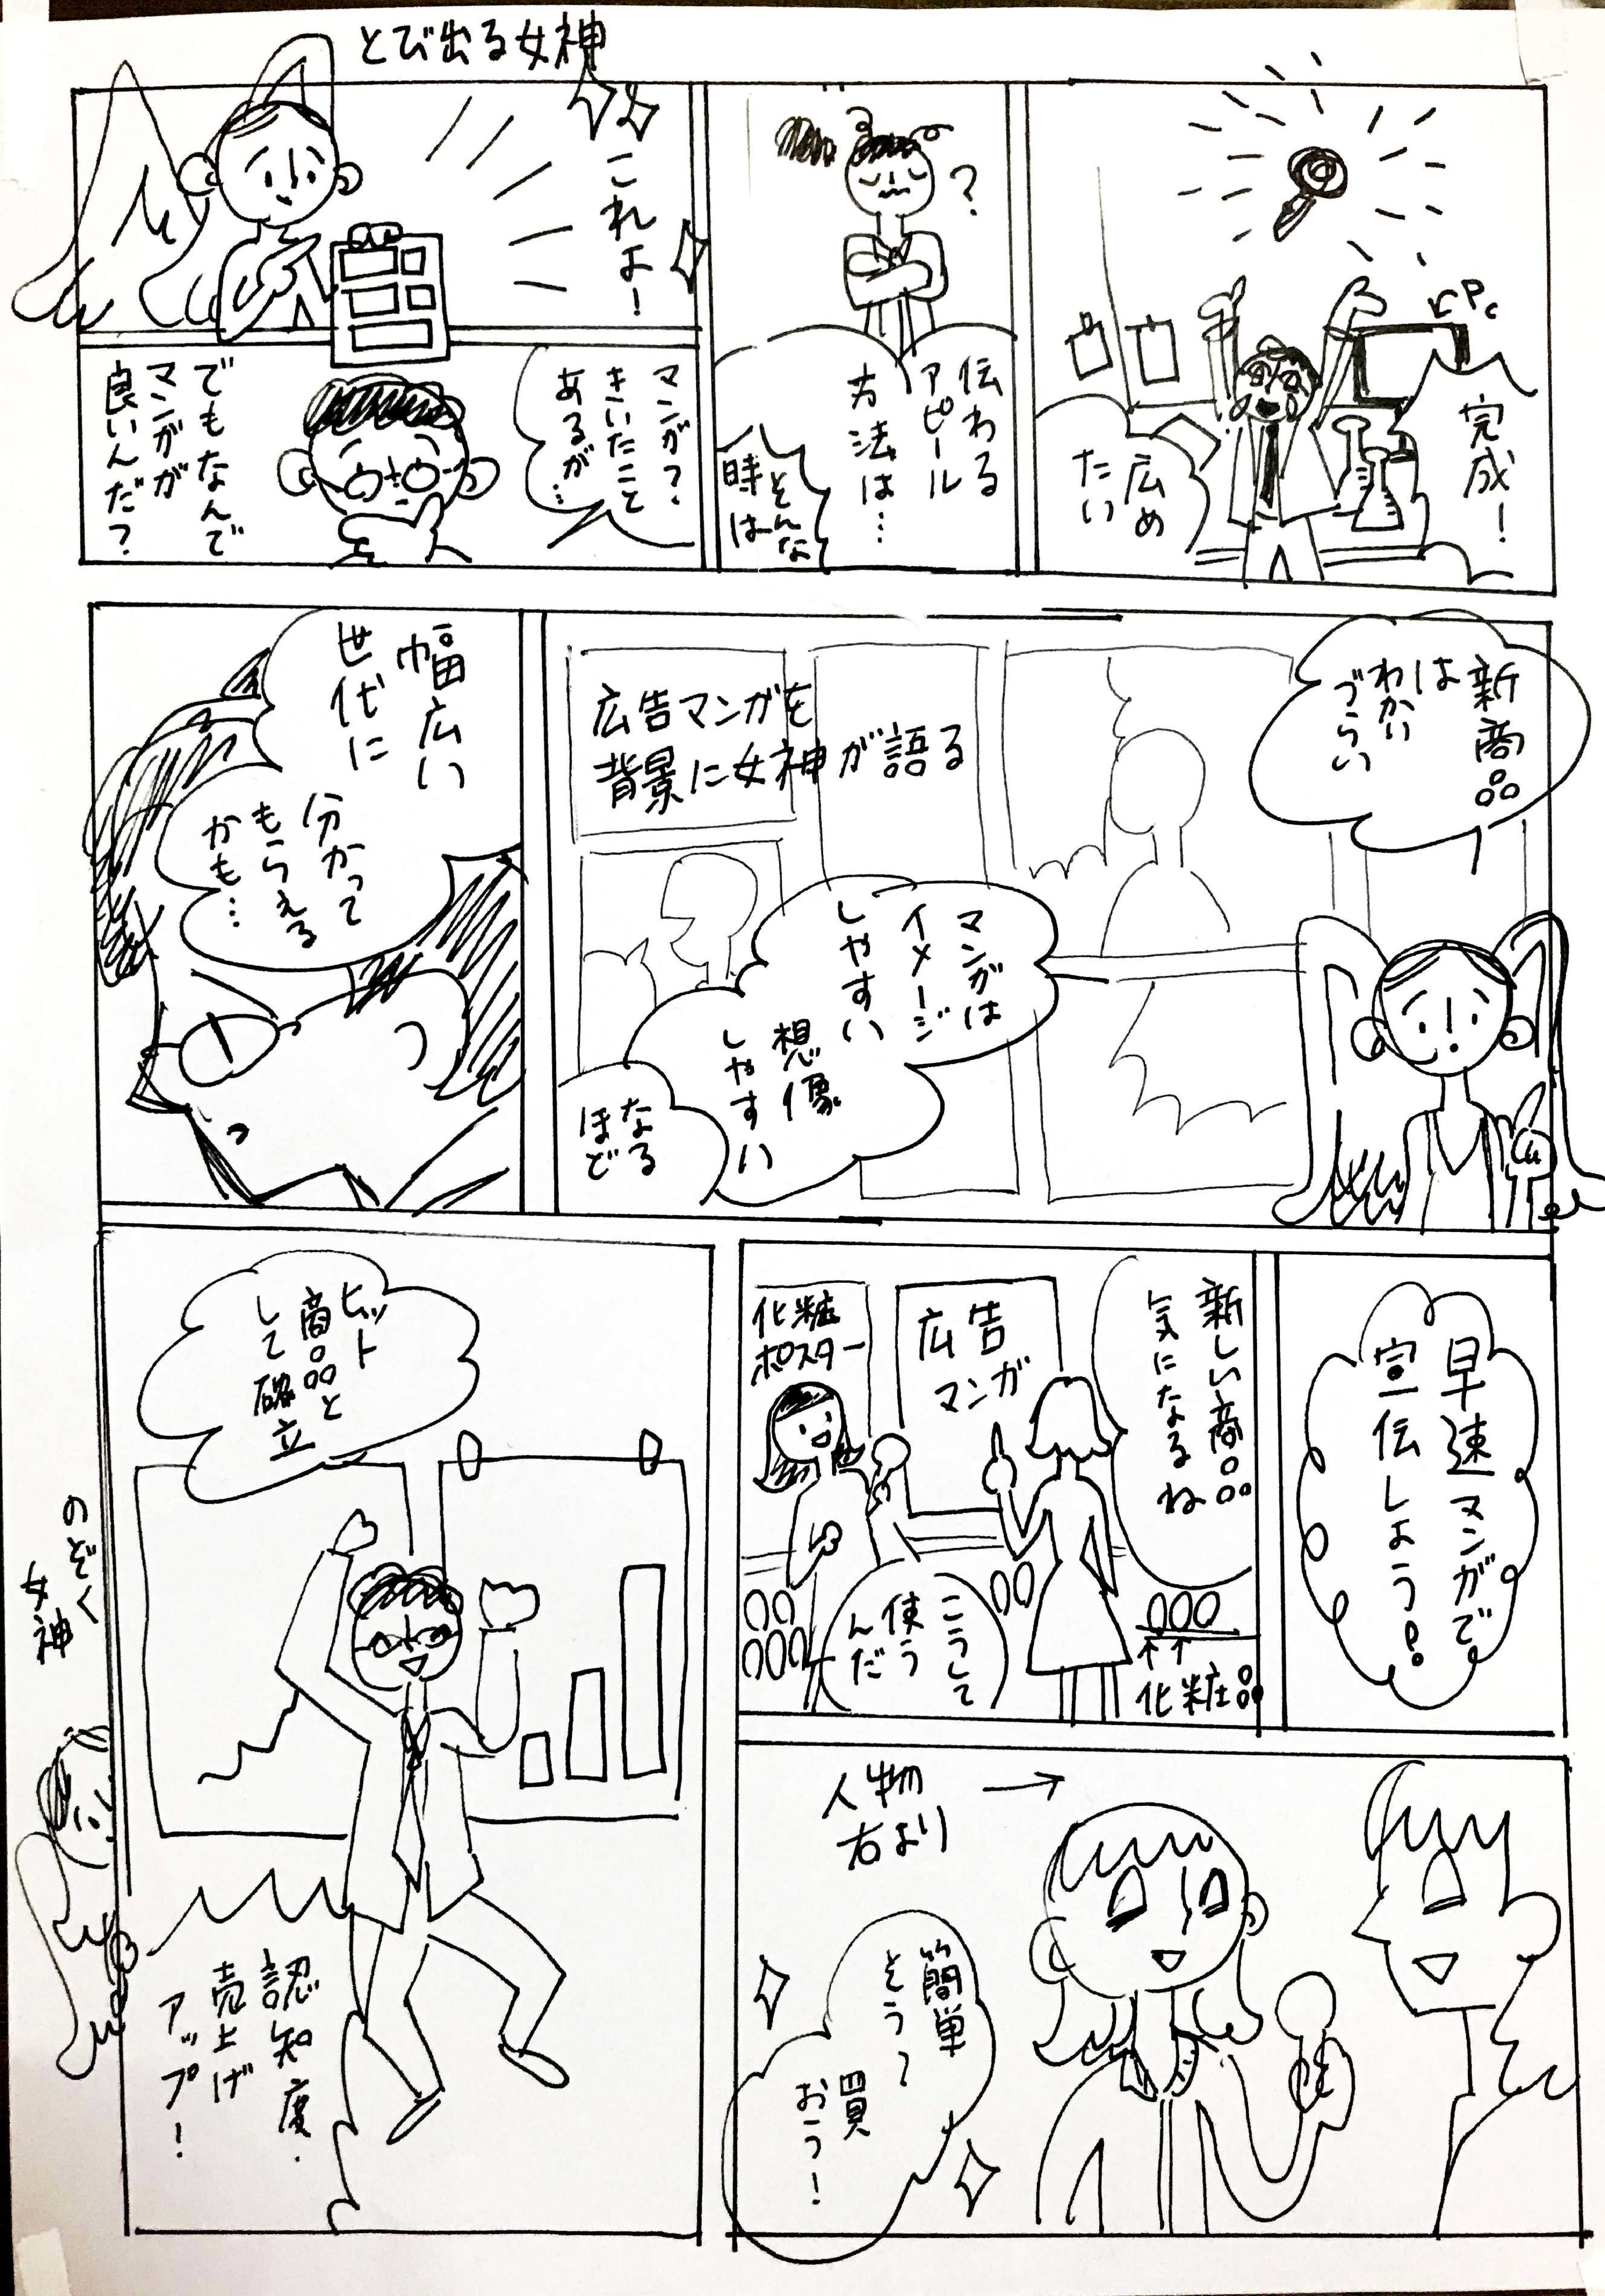 とび出る女神
←PC
完成!
広め
たい
?
伝わる
アピール
方法は…
そんな
時は
これよ!
マンガ?
きいたこと
あるが…
でもなんで
マンガが
良いんだ?
新商品
は
わかい
づらい
広告マンガを
背景に女神が語る
マンガは
イメージ
しやすい
想像
しやすい
なる
ほど
幅広い
世代に
分かって
もらえる
かも…
早速マンガで
宣伝しよう!
新しい商品
気になるね
広告
マンガ
化粧
ポスター
こうして
使う
んだ
↑↑
化粧品
人物 →
右より
簡単
そう〜
買
おう!
ヒット
商品と
して確立
認知度・
売上げ
アップ!
のぞく
女神